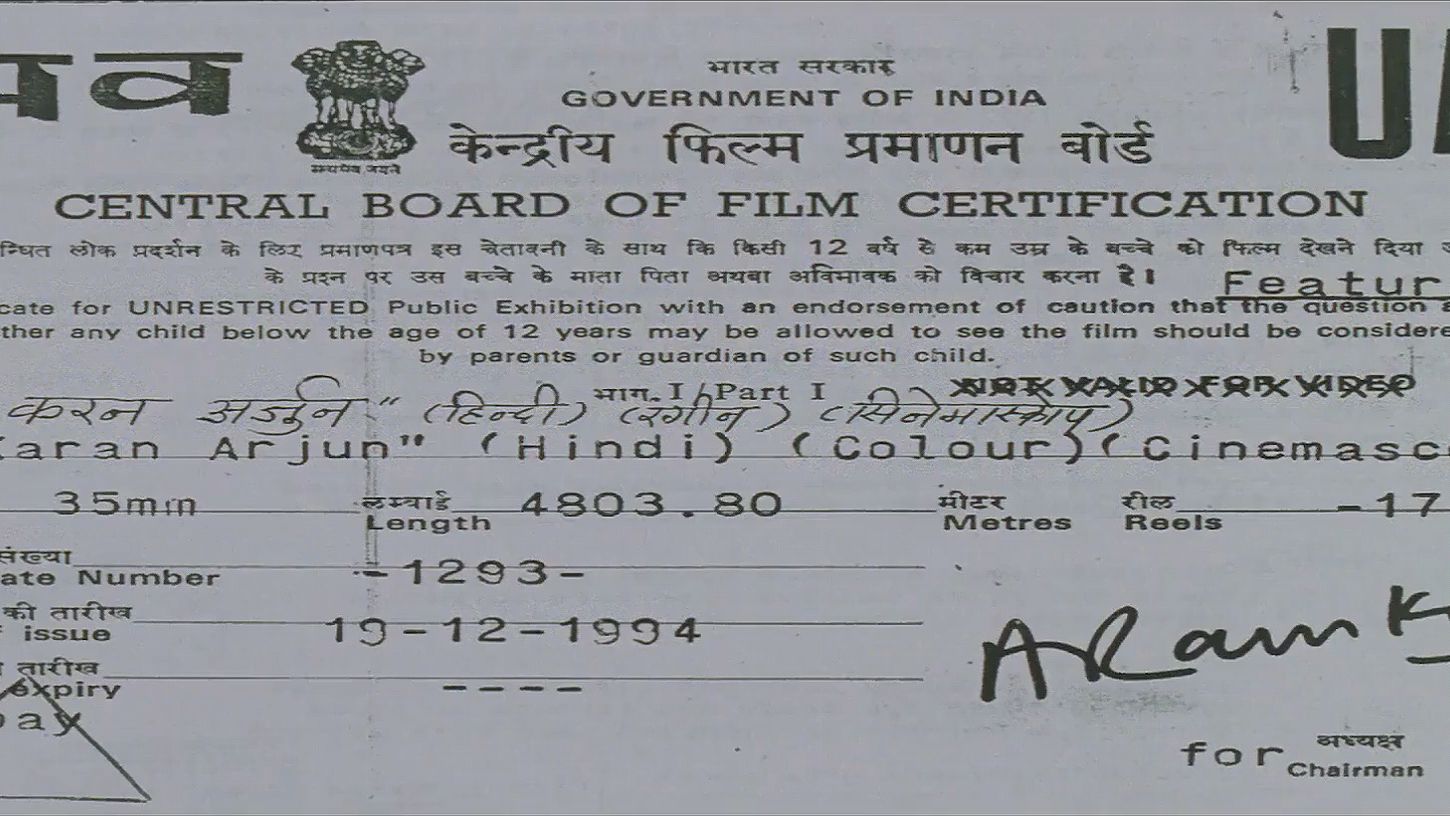 पव UA
भारत सरकार
GOVERNMENT OF INDIA
केन्द्रीय फिल्म प्रमाणन बोर्ड
सत्यमेव जयते
CENTRAL BOARD OF FILM CERTIFICATION
न्धित लोक प्रदर्शन के लिए प्रमाणपत्र इस चेतावनी के साथ कि किसी 12 वर्ष से कम उम्र के बच्चे को फिल्म देखने दिया
के प्रश्न पर उस बच्चे के माता पिता अथबा अविमावक को विचार करना है। Featur
cate for UNRESTRICTED Public Exhibition with an endorsement of caution that the question a
ther any child below the age of 12 years may be allowed to see the film should be considere
by parents or guardian of such child.
भाग.I/Part I NOT VALID FOR VIDEO
करन अर्जुन" (हिन्दी) (रंगीन) (सिनेमास्कोप)
aran Arjun" (Hindi) (Colour)(Cinemasc
35mm लम्बाई 4803.80 मीटर रील -17
Length Metres Reels
संख्या
ate Number -1293-
की तारीख
issue 19-12-1994
तारीख
expiry ----
bay
for अध्यक्ष
Chairman